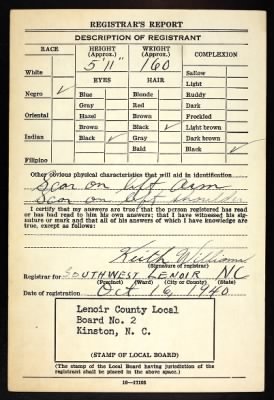 REGISTRAR'S REPORT
DESCRIPTION OF REGISTRANT
RACE HEIGHT (Approx.) WEIGHT (Approx.) COMPLEXION
5'11" 160
White Sallow
EYES HAIR Light
Negro ✓ Blue Blonde Ruddy
Gray Red Dark
Oriental Hazel Brown Freckled
Brown Black ✓ Light brown
Indian Black ✓ Gray Dark brown
Bald Black ✓
Filipino
Other obvious physical characteristics that will aid in identification
Scar on left arm
Scar on left shoulder
I certify that my answers are true; that the person registered has read
or has had read to him his own answers; that I have witnessed his sig-
nature or mark and that all of his answers of which I have knowledge
are true, except as follows:
Keith Williams
(Signature of registrar)
Registrar for SOUTHWEST LENOIR NC
(Precinct) (Ward) (City or County) (State)
Date of registration Oct 16, 1940
Lenoir County Local
Board No. 2
Kinston, N. C.
(STAMP OF LOCAL BOARD)
(The stamp of the Local Board having jurisdiction of the
registrant shall be placed in the above space.)
16—17105